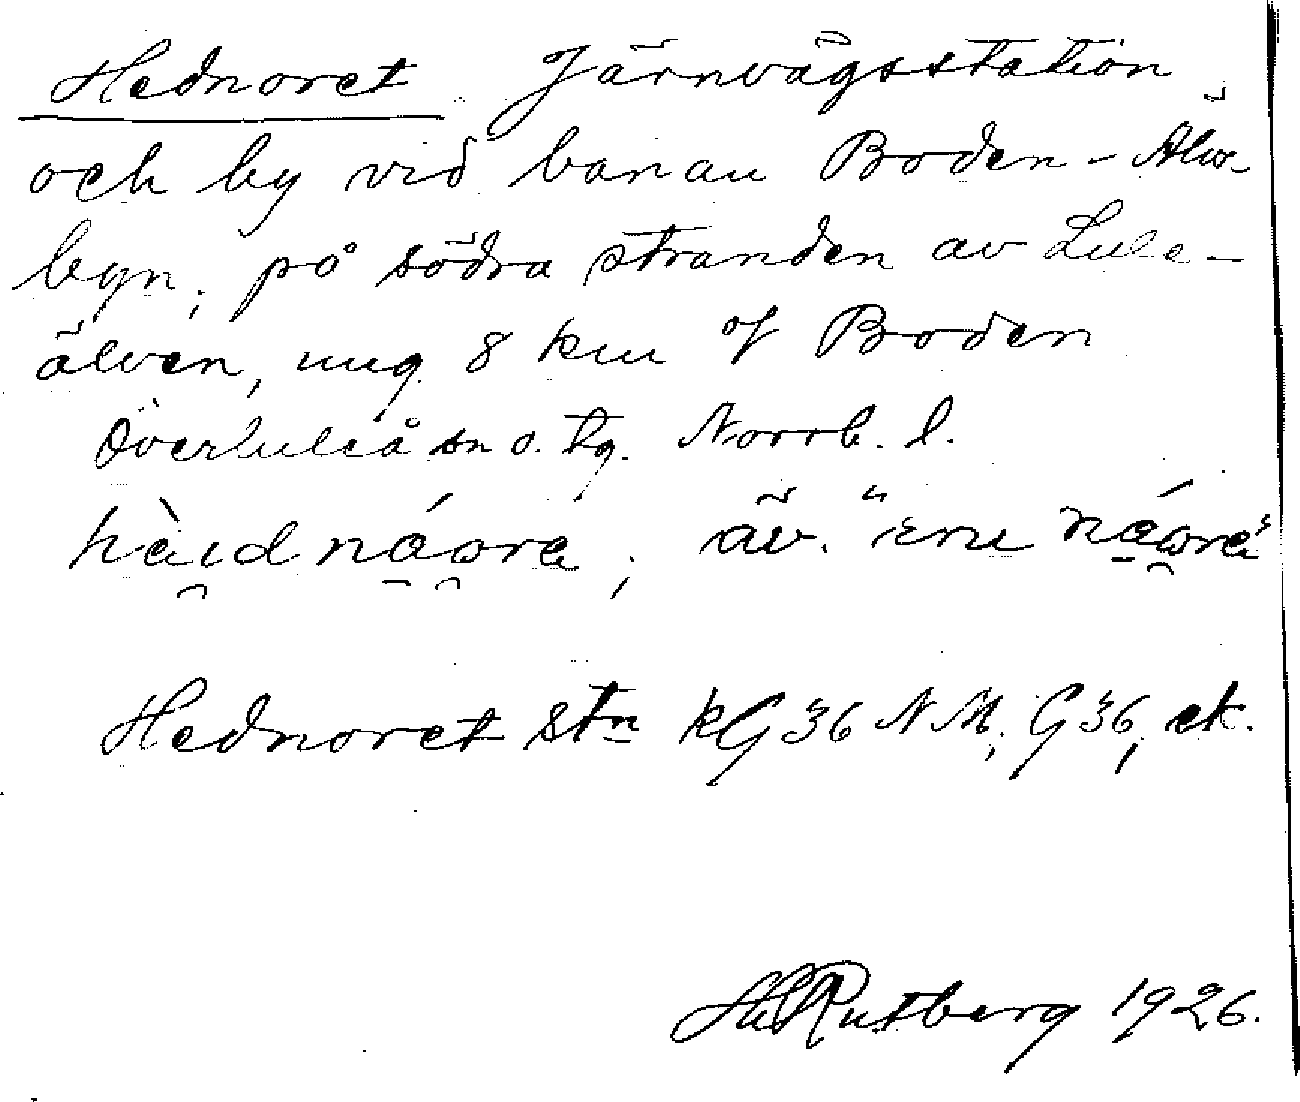 Hednoret Järnvägsstation
och by vid banan Boden - Älvs-
byn, på södra stranden av Lule-
älven, ung. 8 km of Boden
Överluleå sn o. tg. Norrb. l.
hàıdnáore; äv. "enı náore"
Hednoret stn kG36NM; G36, ek.
Rutberg 1926.